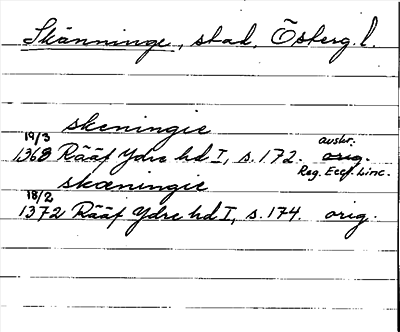 Skänninge, stad, Österg. l.
skeningie
19/3 avskr.
1368 Rääf Ydre hd I, s. 172. orig.
Reg. Eccl. Linc.
skæningie
18/2
1372 Rääf Ydre hd I, s. 174. orig.